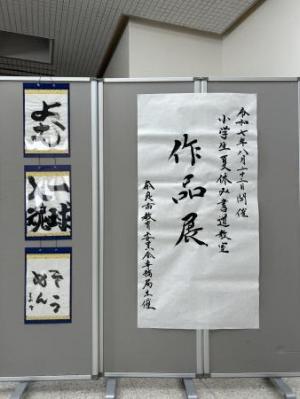 令和七年八月二十二日開催
小学生夏休み書道教室
作品展
奈良市教育委員会事務局主催
一球
入魂
そう
めん